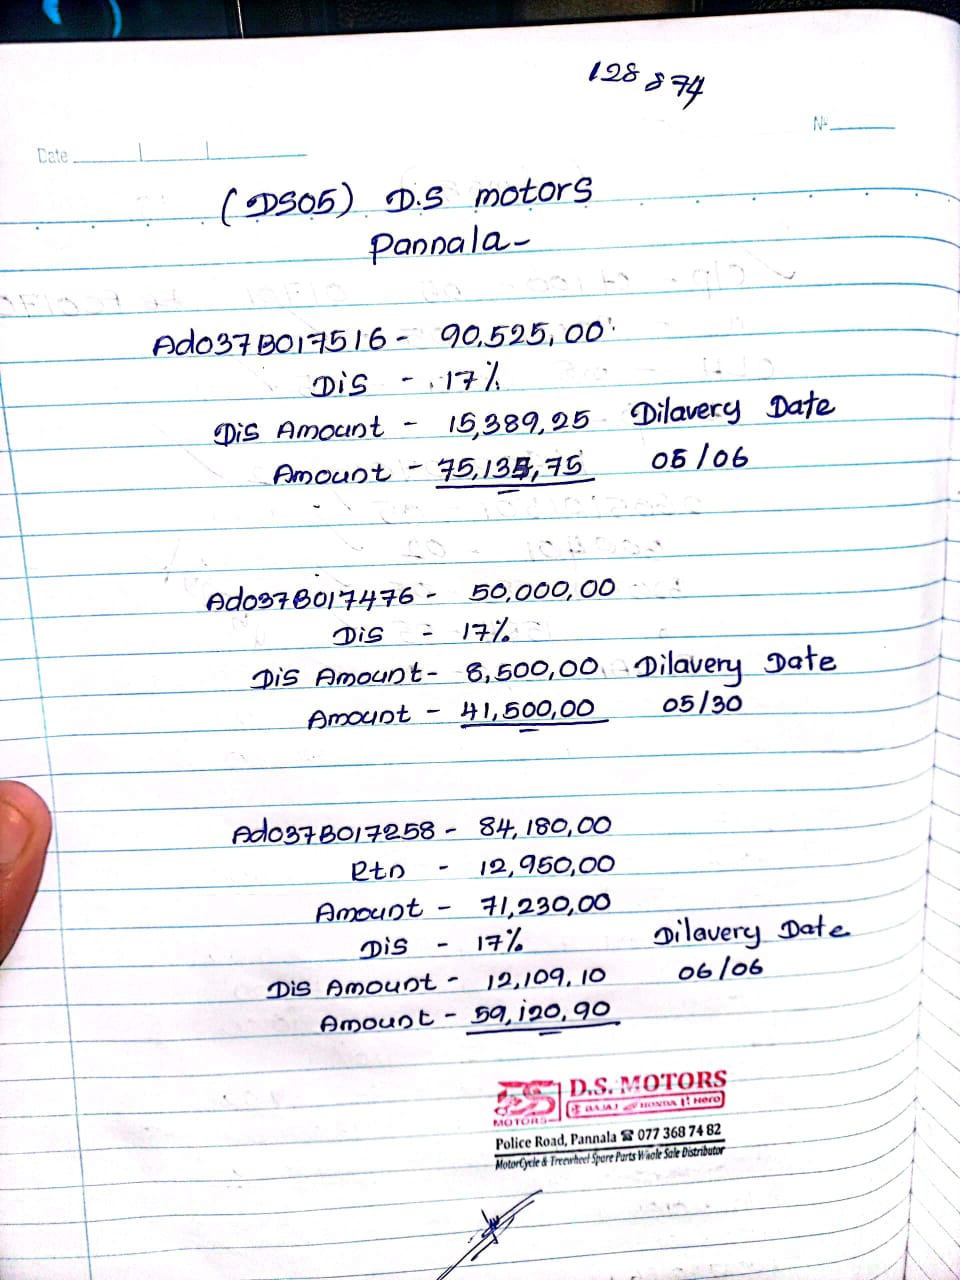 128 874
Nº
Date
(DS05) D.S motors
Pannala-
Ad037B017516 - 90,525,00
Dis - 17%
Dis Amount - 15,389,25 Dilavery Date
Amount - 75,135,75 05/06
Ad037B017476 - 50,000,00
Dis - 17%
Dis Amount - 8,500,00 Dilavery Date
Amount - 41,500,00 05/30
Ad037B017258 - 84,180,00
Rtn - 12,950,00
Amount - 71,230,00
Dis - 17% Dilavery Date
Dis Amount - 12,109,10 06/06
Amount - 59,120,90
DS D.S. MOTORS
MOTORS BAJAJ HONDA Hero
Police Road, Pannala ☎ 077 368 74 82
MotorCycle & Treewheel Spare Parts Whole Sale Distributor